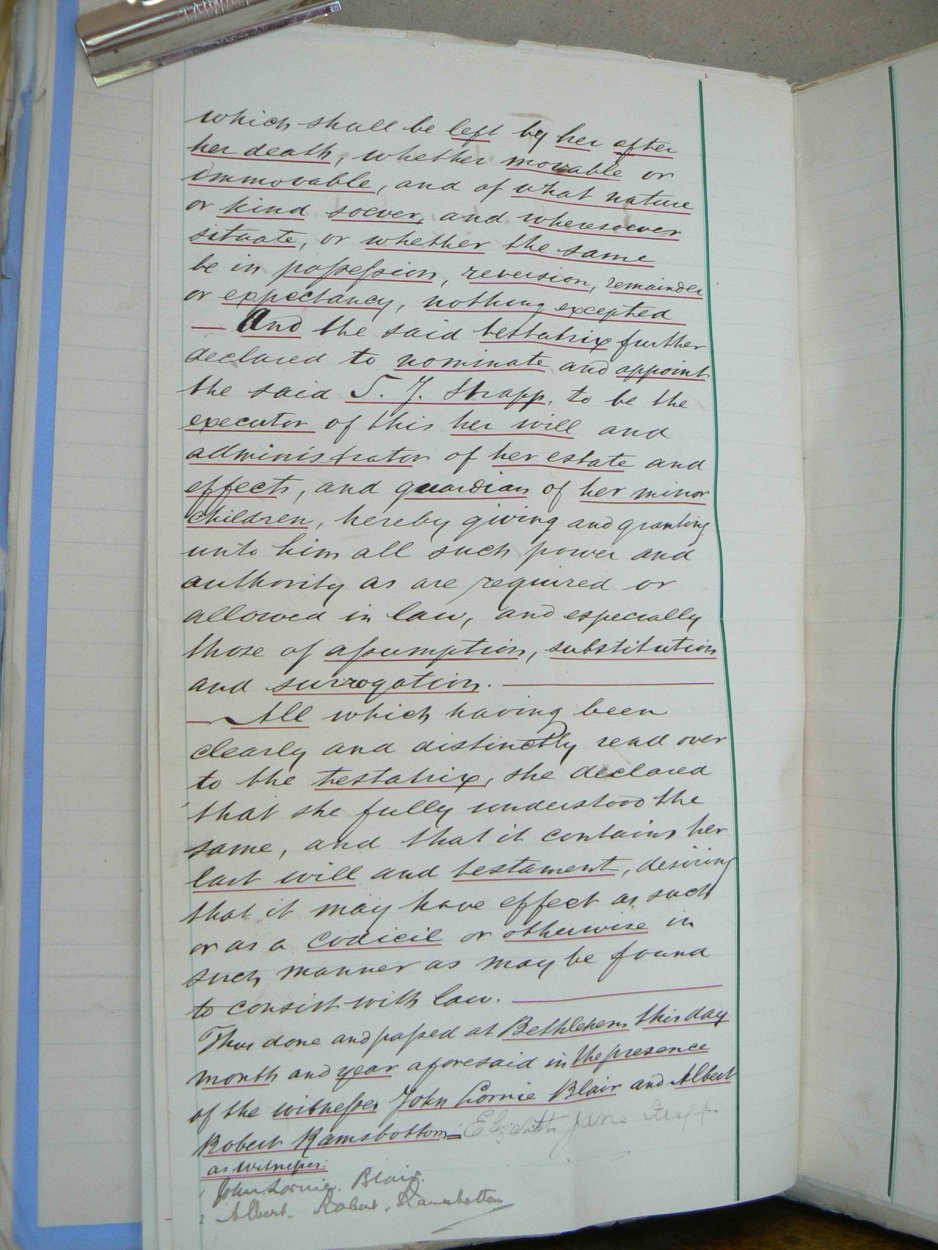 which shall be left by her after
her death, whether movable or
immovable, and of what nature
or kind soever, and wheresoever
situate, or whether the same
be in possession, reversion, remainder
or expectancy, nothing excepted
— And the said testatrix further
declared to nominate and appoint
the said S. J. Strapp, to be the
executor of this her will and
administrator of her estate and
effects, and guardian of her minor
children, hereby giving and granting
unto him all such power and
authority as are required or
allowed in law, and especially
those of assumption, substitution
and surrogation. —
— All which having been
clearly and distinctly read over
to the testatrix, she declared
that she fully understood the
same, and that it contains her
last will and testament, desiring
that it may have effect as such
or as a codicil or otherwise in
such manner as may be found
to consist with law. —
Thus done and passed at Bethlehem this day
month and year aforesaid in the presence
of the witnesses John Lornie Blair and Albert
Robert Ramsbottom — Elizabeth Jane Strapp
as witnesses:
1 John Lornie Blair.
2 Albert. Robert. Ramsbottom